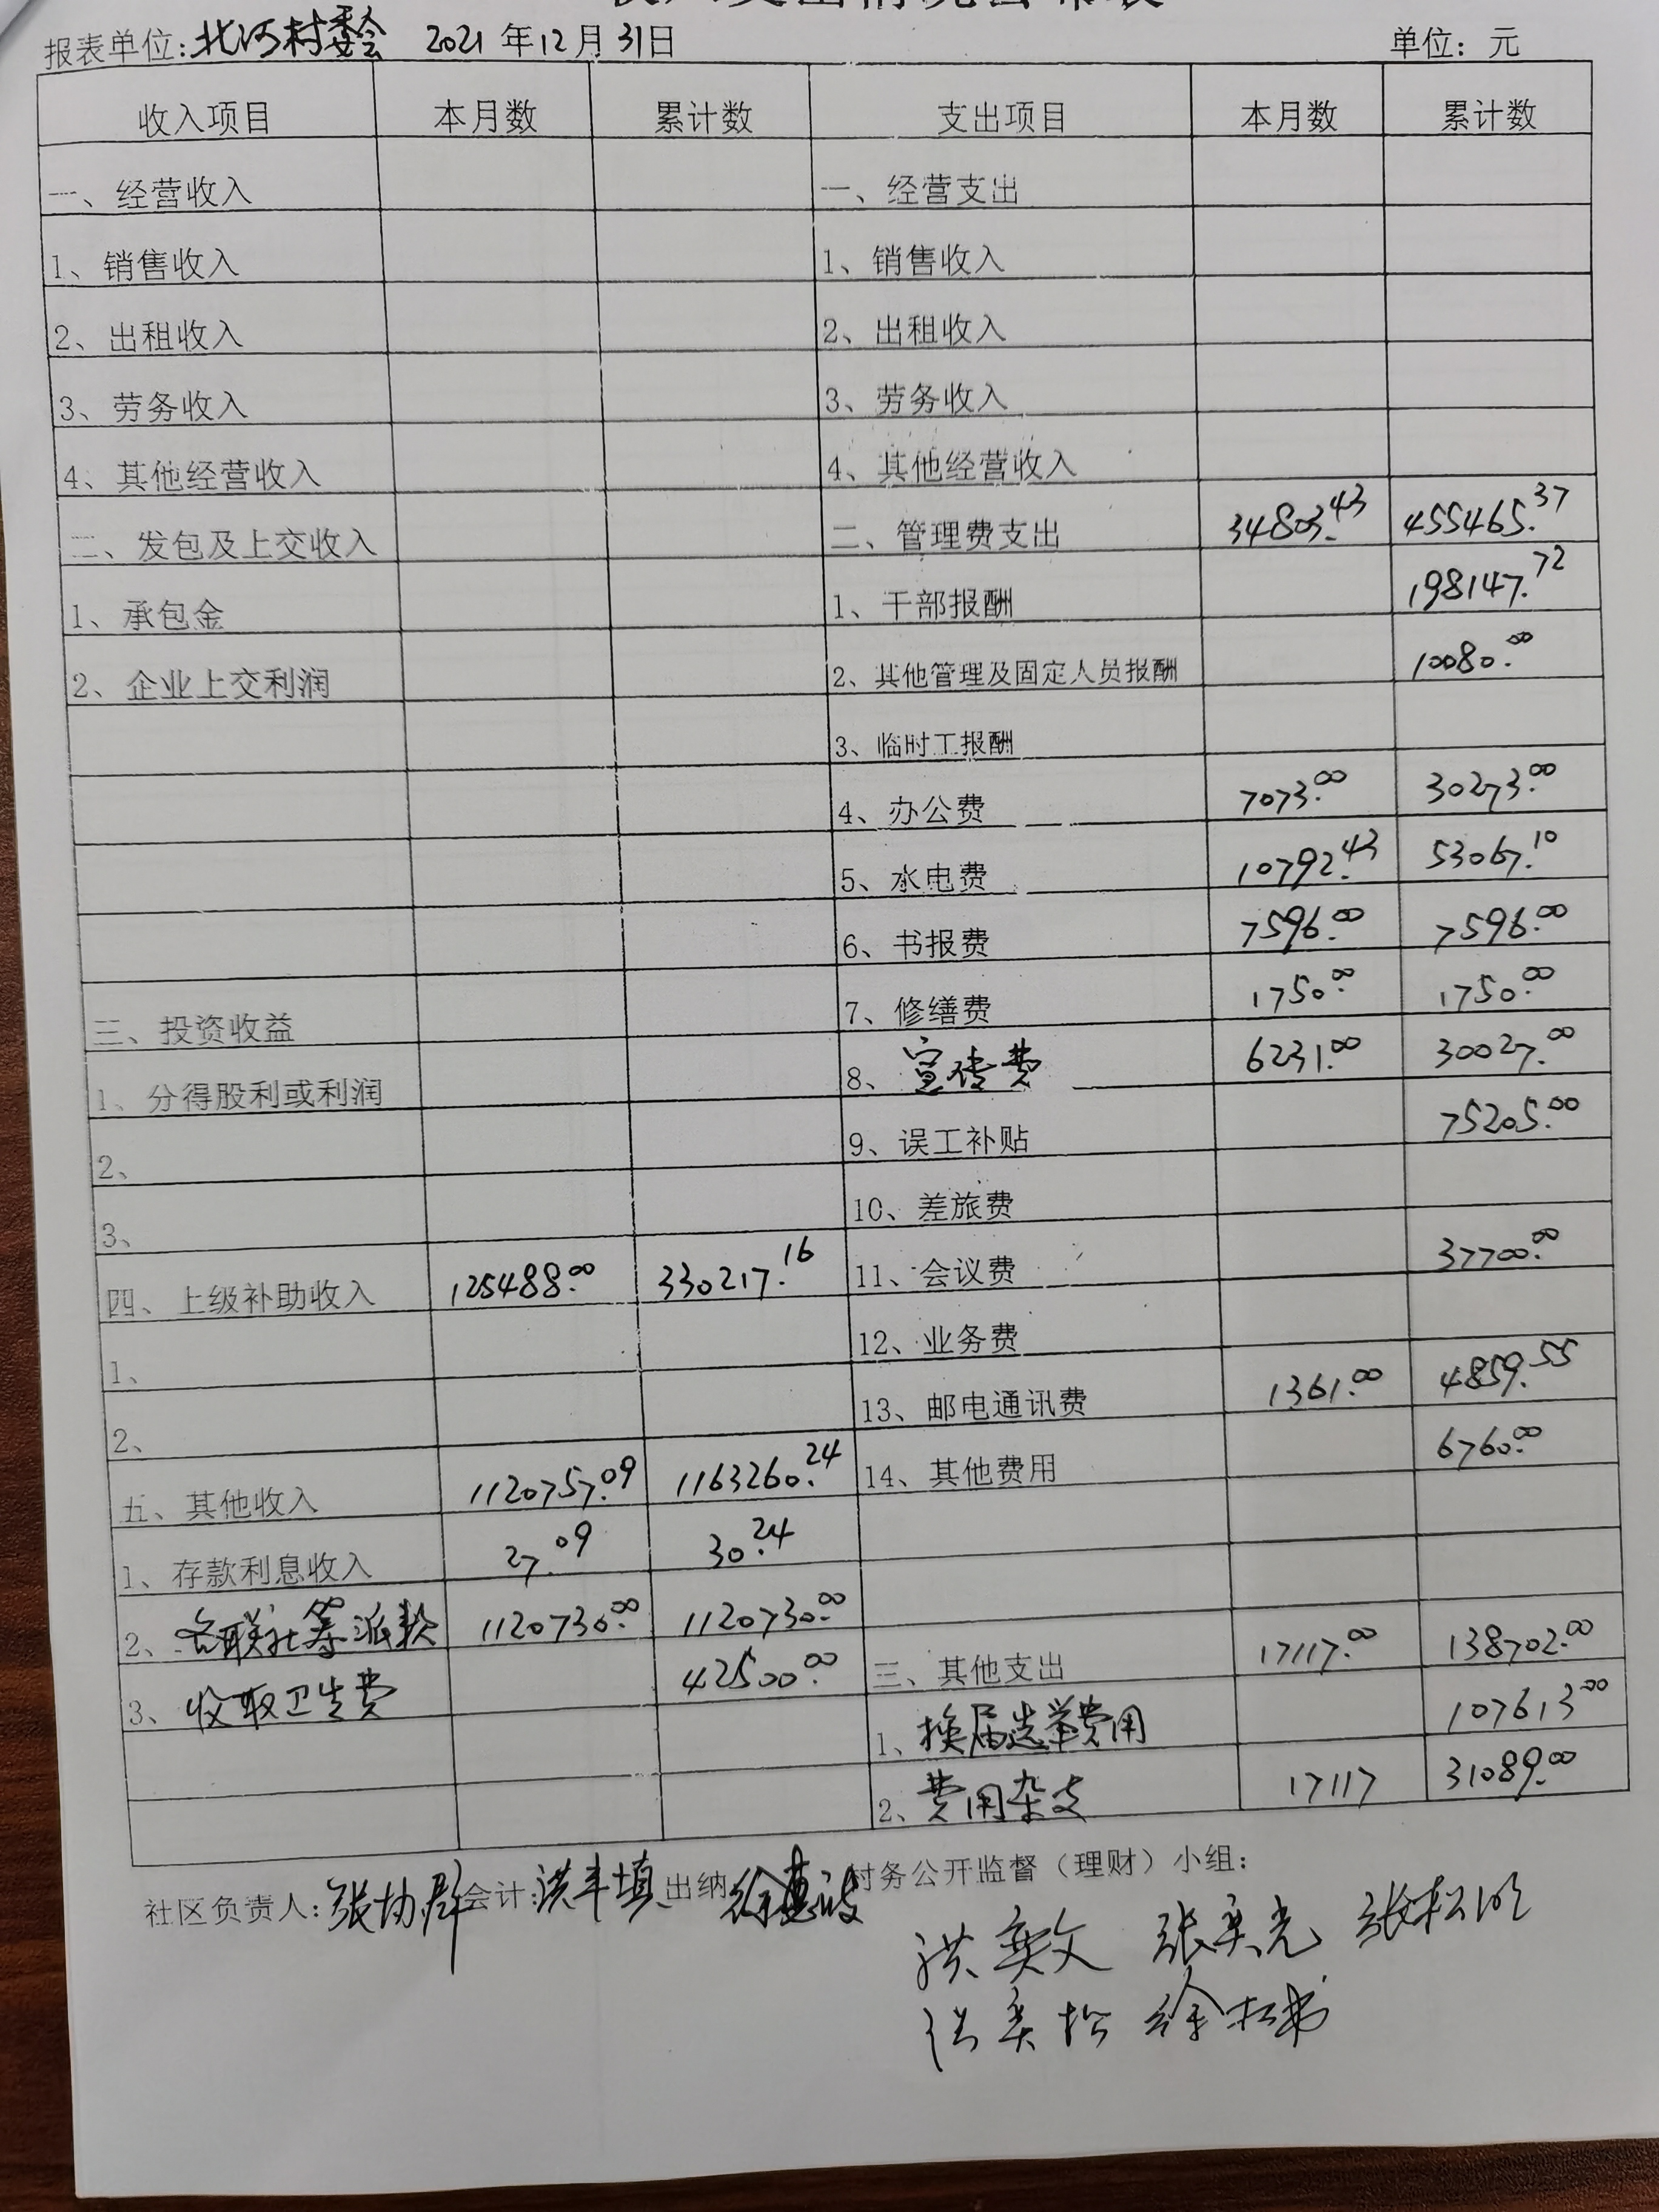 报表单位:北河村委会 2021年12月31日 单位：元
收入项目 本月数 累计数 支出项目 本月数 累计数
一、经营收入 一、经营支出
1、销售收入 1、销售收入
2、出租收入 2、出租收入
3、劳务收入 3、劳务收入
4、其他经营收入 4、其他经营收入
二、发包及上交收入 二、管理费支出 34803.43 455465.37
1、承包金 1、干部报酬 198147.72
2、企业上交利润 2、其他管理及固定人员报酬 10080.00
3、临时工报酬
4、办公费 7073.00 30273.00
5、水电费 10792.43 53067.10
6、书报费 7596.00 7596.00
三、投资收益 7、修缮费 1750.00 1750.00
1、分得股利或利润 8、宣传费 6231.00 30027.00
2、 9、误工补贴 75205.00
3、 10、差旅费
四、上级补助收入 125488.00 330217.16 11、会议费 37700.00
1、 12、业务费
2、 13、邮电通讯费 1361.00 4859.55
五、其他收入 1120757.09 1163260.24 14、其他费用 6760.00
1、存款利息收入 27.09 30.24
2、各联社筹派款 1120730.00 1120730.00
3、收取卫生费 42500.00 三、其他支出 17117.00 138702.00
1、换届选举费用 107613.00
2、费用杂支 17117 31089.00
社区负责人:张协群 会计:洪丰填 出纳 徐惠波 村务公开监督（理财）小组：
洪奕文 张奕光 张松
洪奕松 徐松